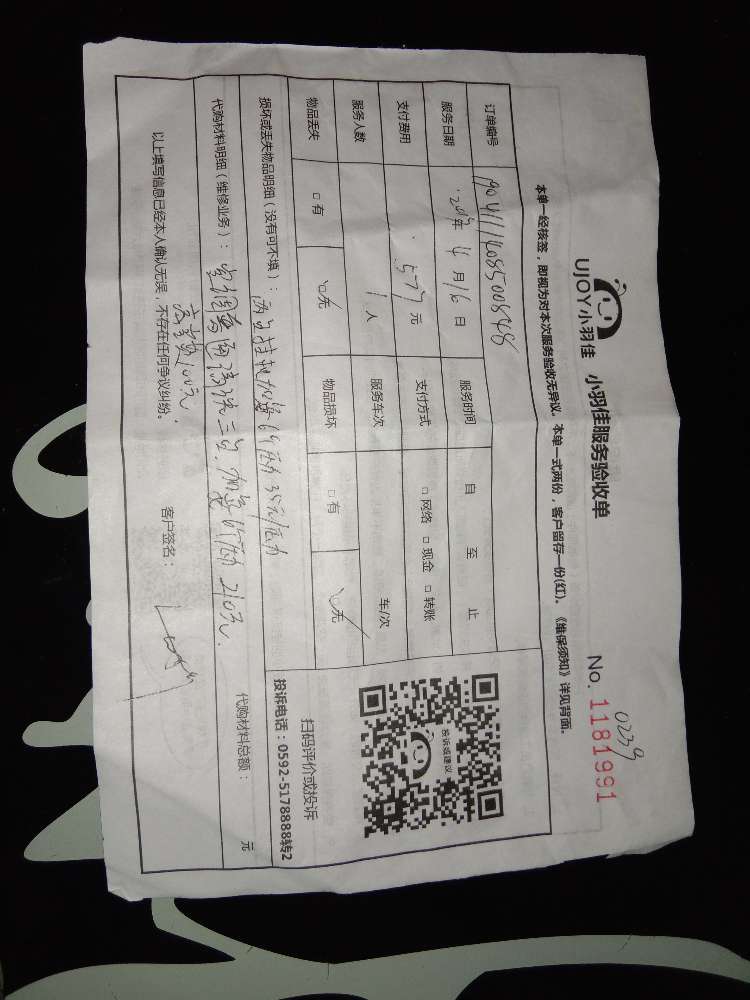 UJOY小羽佳 小羽佳服务验收单
No. 1181991
0239
本单一经核签，即视为对本次服务验收无异议。本单一式两份，客户留存一份(红)。《维保须知》详见背面。
订单编号 服务时间 自 至 止
服务日期 2019年 4月16日 支付方式 □ 网络 □ 现金 □ 转账
支付费用 577元 服务车次 车/次
服务人数 1人
物品丢失 □ 有 □ 无 物品损坏 □ 有 □ 无
投诉或建议
扫码评价或投诉
投诉电话：0592-5178888转2
损坏或丢失物品明细（没有可不填）：
代购材料明细（维修业务）： 210元 代购材料总额： 元
100元
以上填写信息已经本人确认无误，不存在任何争议纠纷。 客户签名：